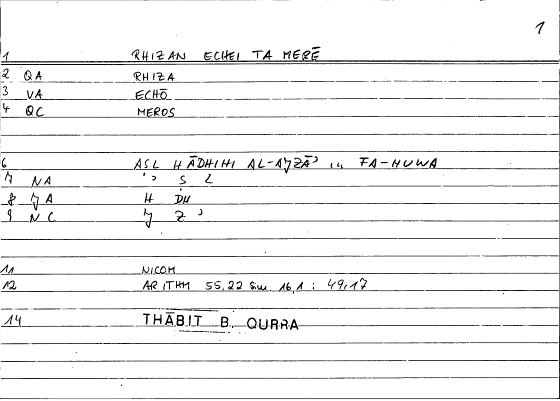 1
1 RHIZAN ECHEI TA MERĒ
2 QA RHIZA
3 VA ECHŌ
4 QC MEROS
6 AṢL HĀDHIHI AL-AJZĀʾ ... FA-HUWA
7 NA ʾ Ṣ L
8 JA H DH
9 NC J Z ʾ
11 NICOM
12 ARITHM 55,22 Sim. 16,1 : 49,17
14 THĀBIT B. QURRA